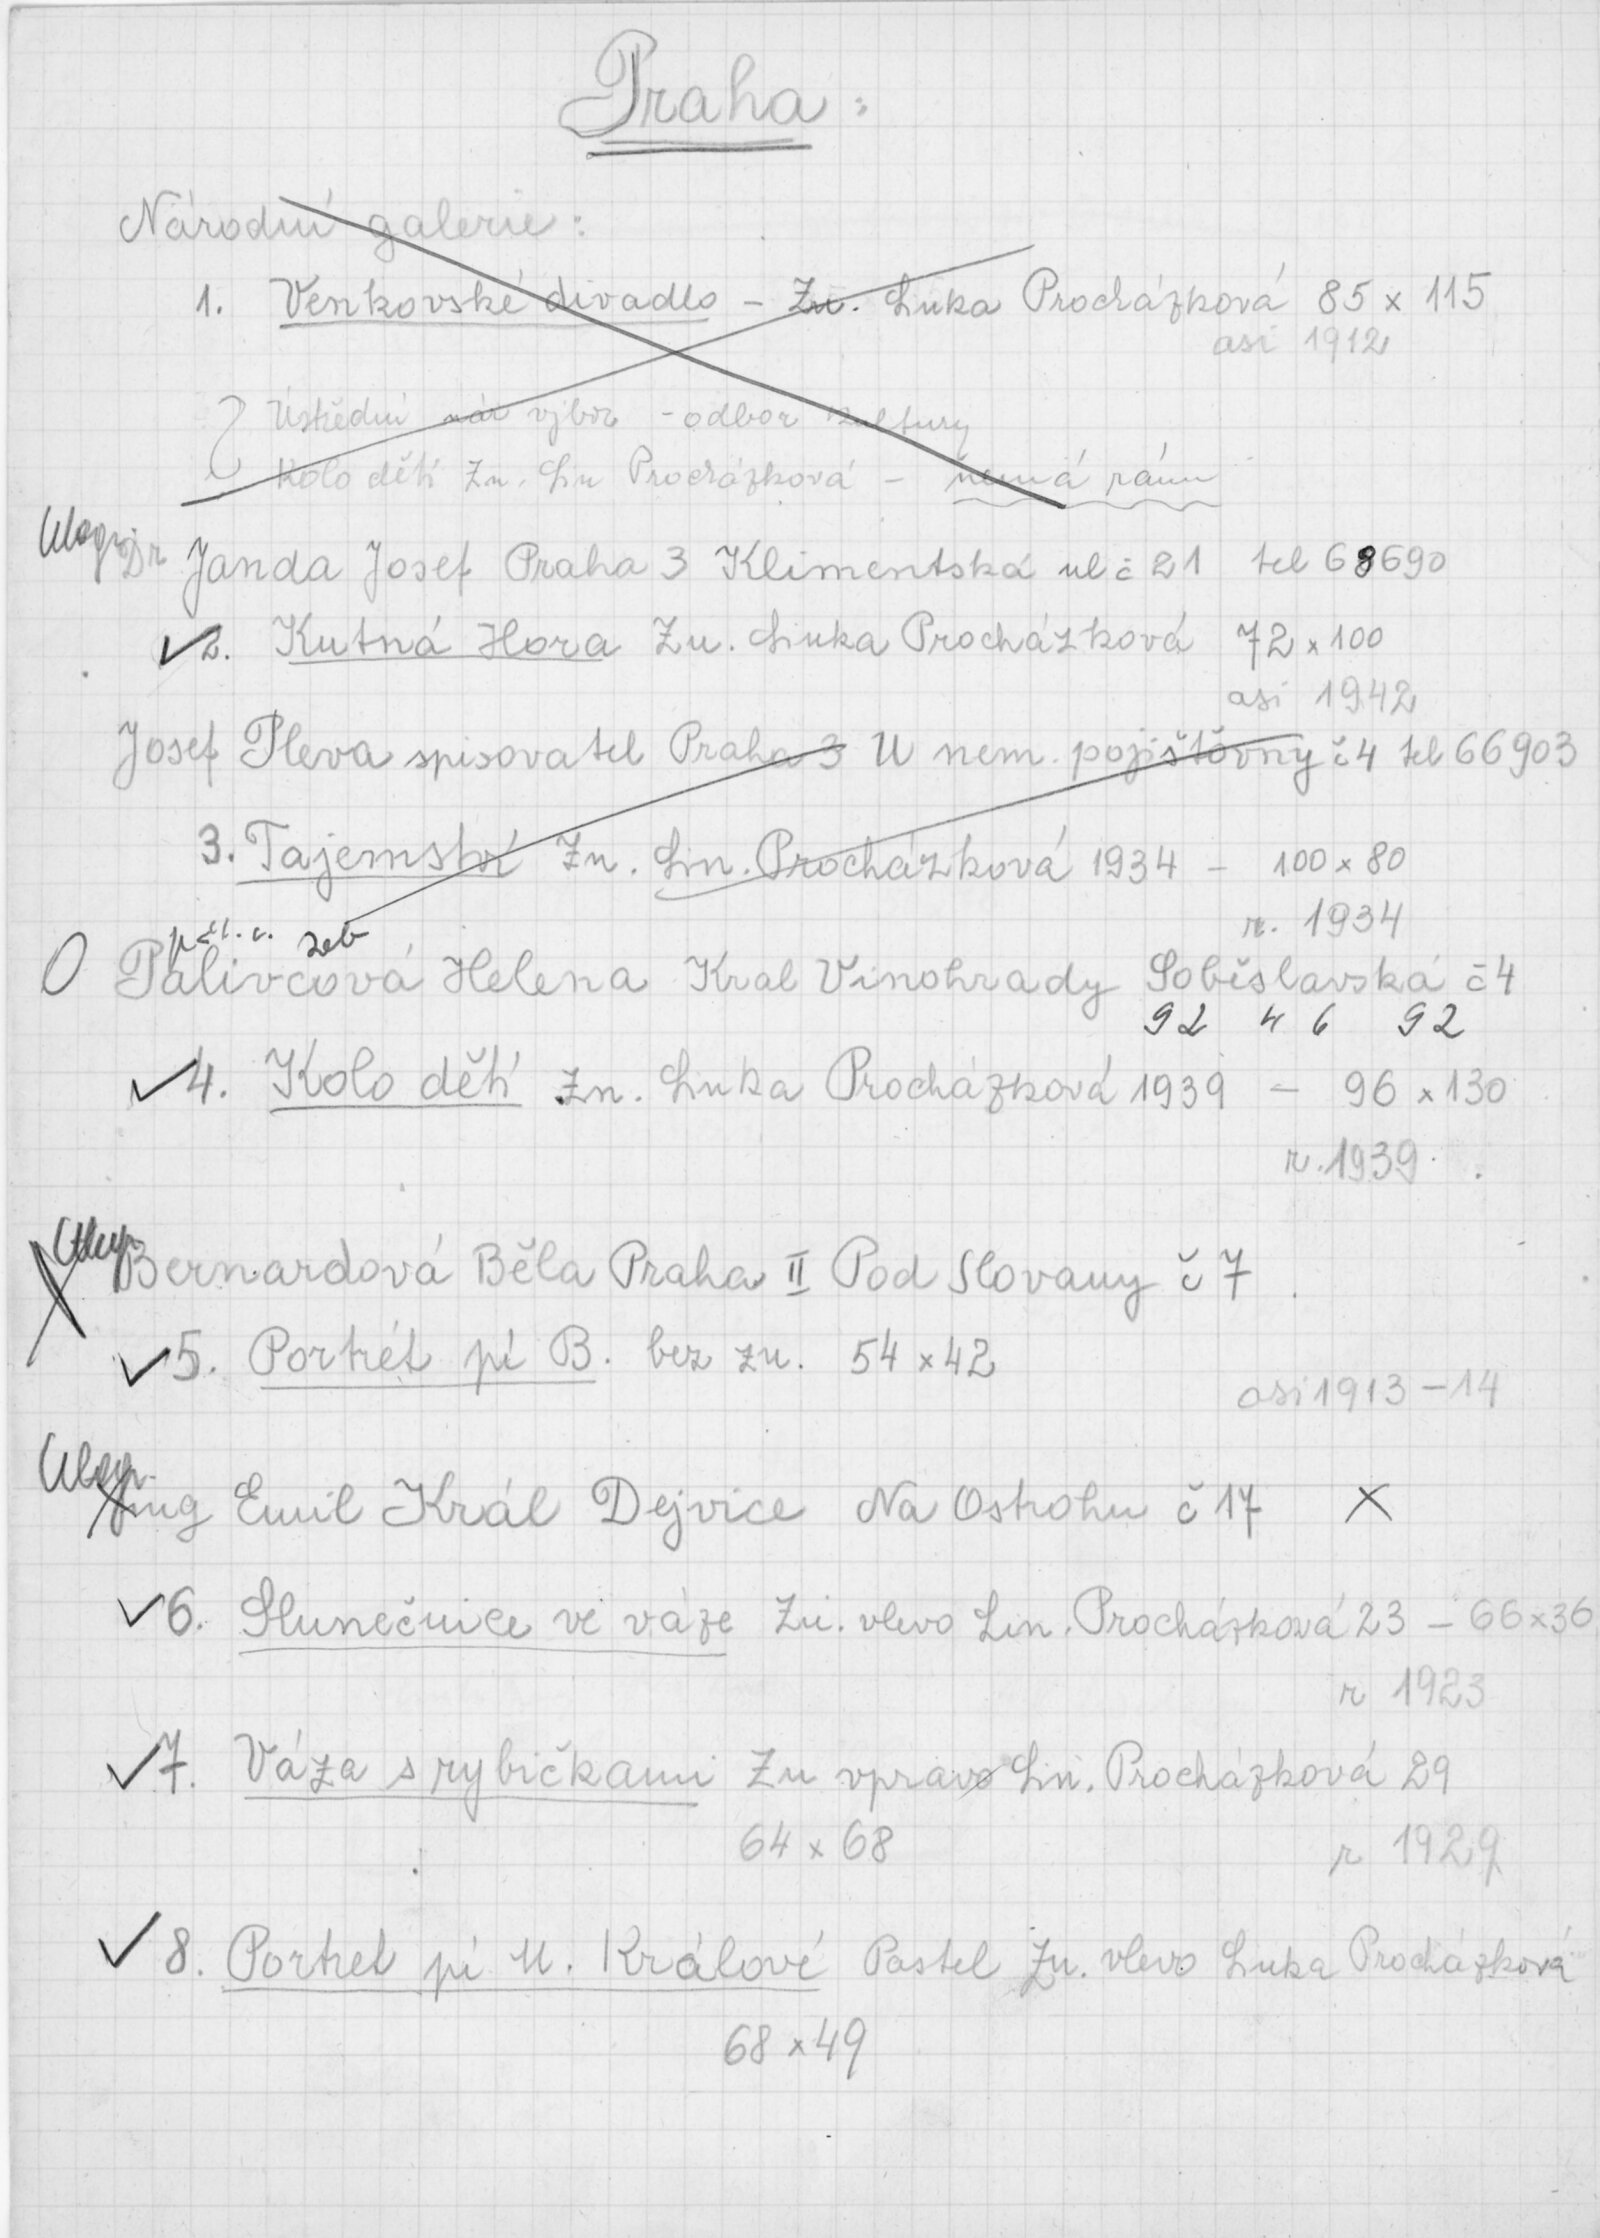 Praha:
Národní galerie:
1. Venkovské divadlo - Zn. Linka Procházková 85 x 115
asi 1912
Ústřední nár výbor - odbor kultury
Kolo dětí Zn. Lin Procházková - nemá rám
Dr Janda Josef Praha 3 Klimentská ul č 21 tel 68690
2. Kutná Hora Zn. Linka Procházková 72 x 100
asi 1942
Josef Pleva spisovatel Praha 3 U nem. pojišťovny č 4 tel 66903
3. Tajemství Zn. Lin. Procházková 1934 - 100 x 80
r. 1934
Palivcová Helena Kral Vinohrady Soběslavská č 4
92 46 92
4. Kolo dětí Zn. Linka Procházková 1939 - 96 x 130
r. 1939.
Bernardová Běla Praha II Pod Slovany č 7
5. Portrét pí B. bez zn. 54 x 42
asi 1913 - 14
Ing Emil Král Dejvice Na Ostrohu č 17 X
6. Slunečnice ve váze Zn. vlevo Lin. Procházková 23 - 66 x 36
r 1923
7. Váza s rybičkami Zn vpravo Lin. Procházková 29
64 x 68
r 1929
8. Portret pí M. Králové Pastel Zn. vlevo Linka Procházková
68 x 49